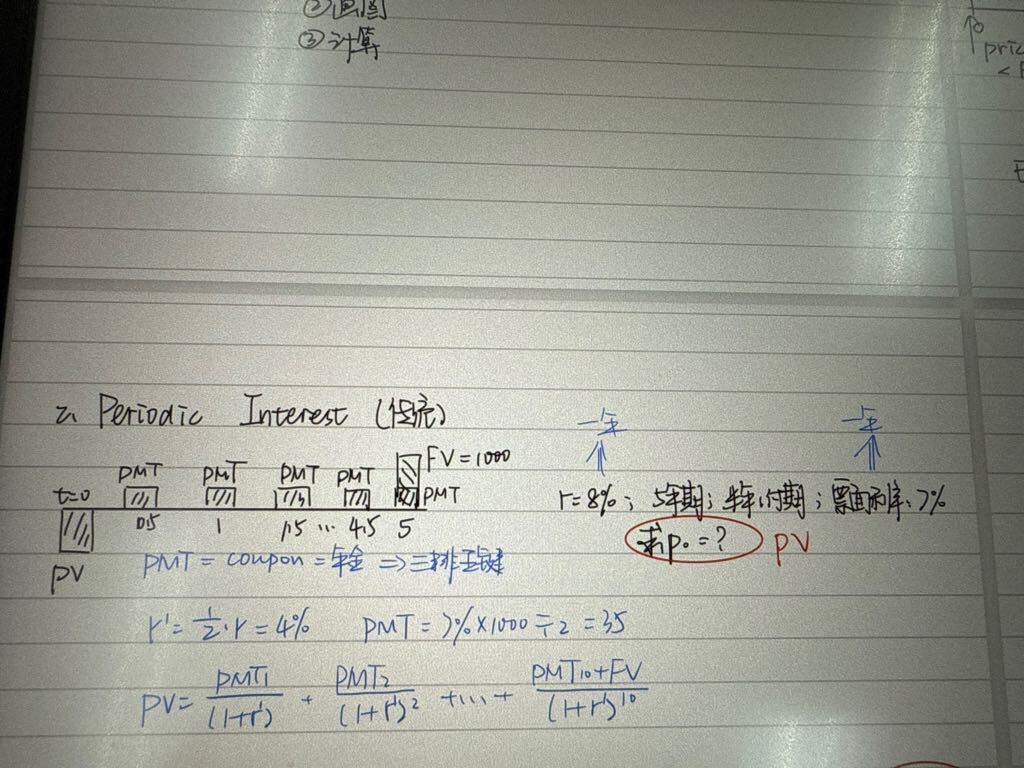 ②画图
③计算
pric
<
2、Periodic Interest (传统)
一年
一年
FV=1000
PMT PMT PMT PMT
t=0
PMT
0.5 1 1.5 ... 4.5 5
PV
r=8%; 5年期; 半年付期; 票面利率:7%
求p₀=? PV
PMT = coupon = 年金 => 三排五键
r' = 1/2·r = 4% PMT = 7%×1000÷2 = 35
PV = PMT₁/(1+r') + PMT₂/(1+r')² +...+ PMT₁₀+FV/(1+r')¹⁰